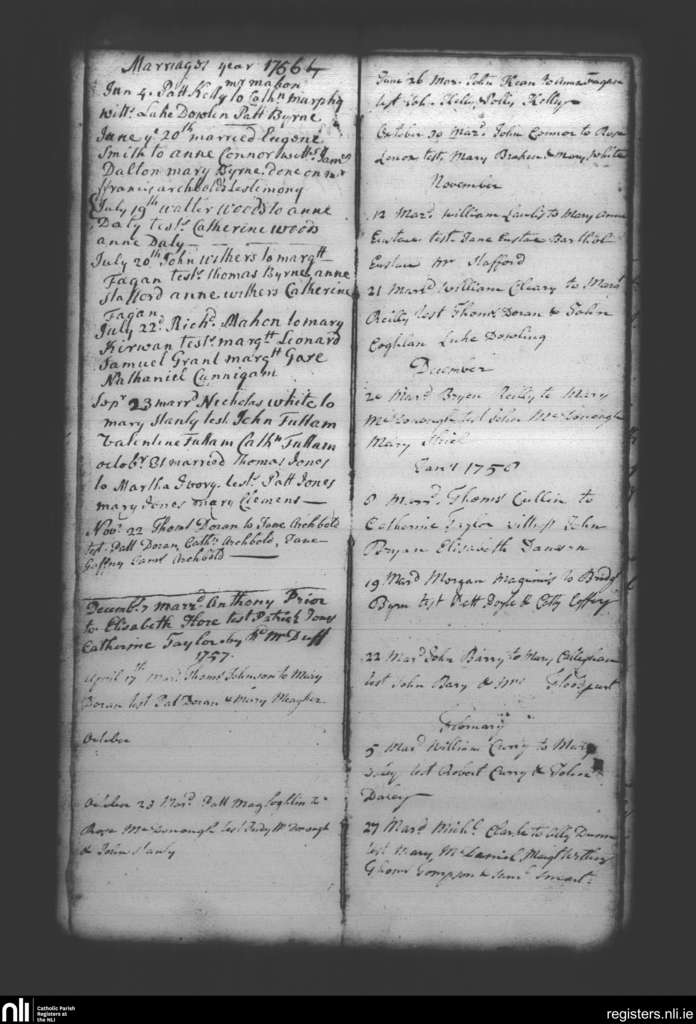 Marriages year 1756
Jan 4. Patt Kelly to Cathn murphy
mr mahon
witts. Luke Dowlen Patt Byrne
June ye 20th married Eugene
Smith to anne Connor witts
Dalton mary Byrne. done on mr
ffrancis archbolds testimony
July 19th walter woods to anne
Daly tests. Catherine woods
anne Daly
July 20th John withers to margtt
Fagan tests. thomas Byrne anne
Stafford anne withers Catherine
Fagan
July 22d Richd. Mahon to mary
Kirwan tests. margtt Leonard
Samuel Grant margtt Gore
Nathaniel Cunnigam
Sepr 23 marrd Nicholas white to
mary Stanly test John Tuttam
Valentine Tuttam Cathn Tuttam
octobr 31 married thomas Jones
to Martha Ivory. tests. Patt Jones
mary Jones mary Clemens
Novr 22 Thoms Doran to Jane Archbold
test. Patt Doran, Cathn Archbold, Jane
Gaffny Archbold
Decembr 7 marrd. Anthony Prior
to Elisabeth Hore test Patrick Jones
Catherine Taylor by Mc Duff
1757.
April 17th Mard. Thoms Johnson to Mary
Doran test Pat Doran & Mary Meagher
October
October 23 Mard. Patt to
Rose McDonough test Judy McDonough
& John Stanly
June 26 Mar. John Kean to Anne Fagan
test Joh. Kelly, Polly Kelly
October 30 Mard. John Connor to Rose
test. Mary Braken & Mary White
November
12 Mard. William Lawlis to Mary Anne
Eustace test. Jane Eustace Barthol
Eustace Mr Stafford
21 Marrd William Cleary to Mard
Reilly test Thoms Doran & John
Coghlan Luke Dowling
December
20 Mard Bryen Reilly to Mary
McDonough test John McDonough
Mary
Jany 1758
8 Marrd. Thoms Cullin to
Catherine Taylor John
Bryan Elizabeth Dawson
19 Mard Morgan Maginnis to Bridgt
Byrn test Patt Doyle & Caffery
22 Mard John Barry to Mary Callaghan
test John Bary & Mrs
February
5 Mard William Curry to Mary
Daley test Robert Curry & John
Daley
27 Mard Michl. Clarke to Dunn
test Mary Margt Withers
Thoms Tompson &
nli
Catholic Parish
Registers at
the NLI
registers.nli.ie